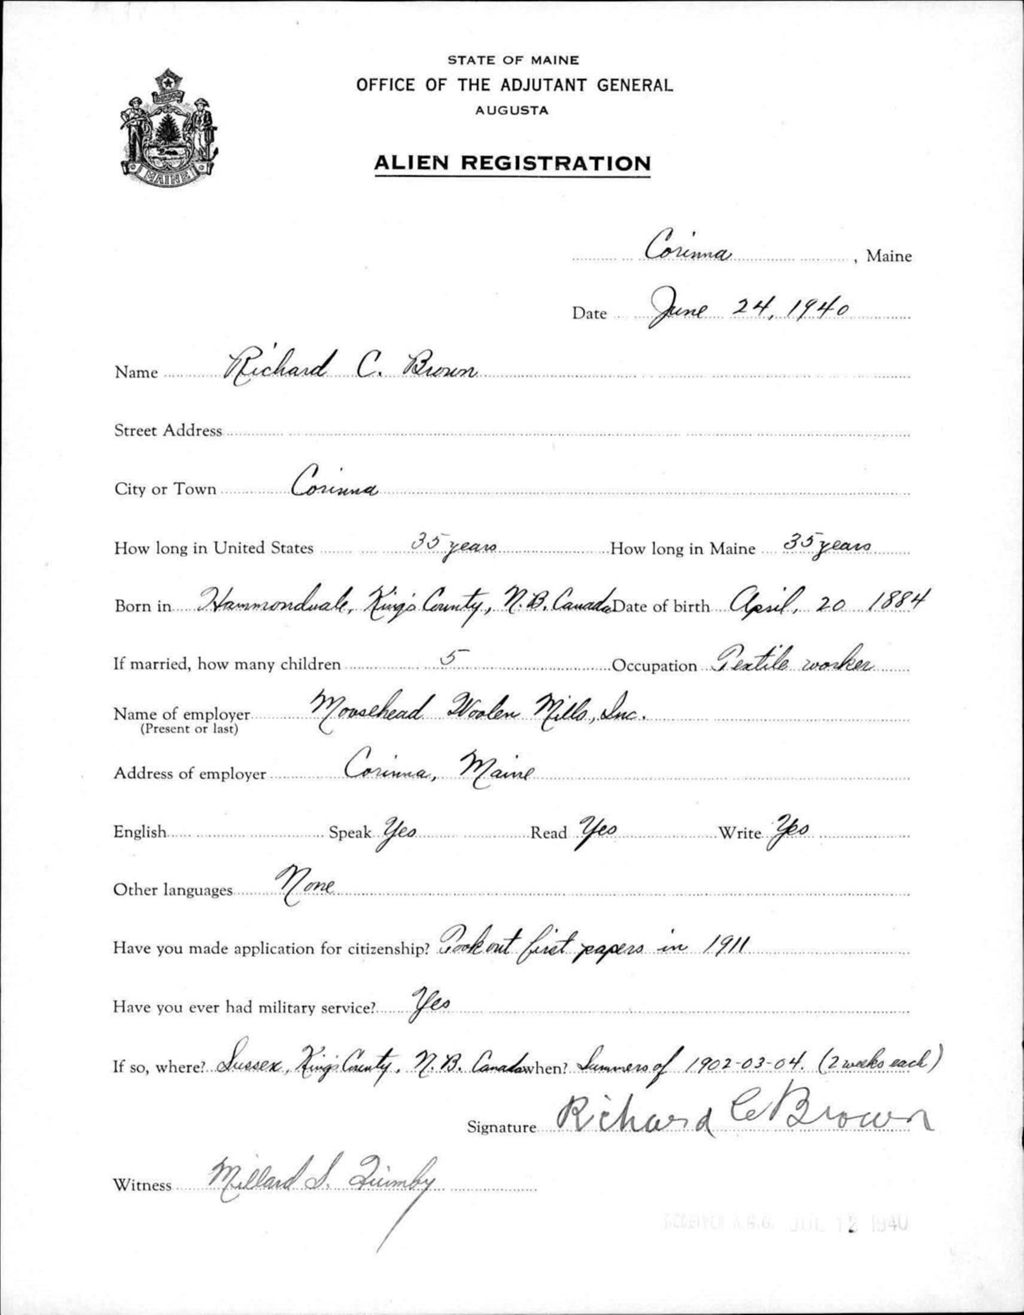 STATE OF MAINE
OFFICE OF THE ADJUTANT GENERAL
AUGUSTA
ALIEN REGISTRATION
MAINE
Corinna, Maine
Date June 24, 1940
Name Richard C. Brown
Street Address
City or Town Corinna
How long in United States 35 years How long in Maine 35 years
Born in Hammondvale, King's County, N.B. Canada Date of birth April, 20 1884
If married, how many children 5 Occupation Textile worker
Name of employer Moosehead Woolen Mills, Inc.
(Present or last)
Address of employer Corinna, Maine
English Speak Yes Read Yes Write Yes
Other languages None
Have you made application for citizenship? Took out first papers in 1911
Have you ever had military service? Yes
If so, where? Sussex, King's County, N.B. Canada when? Summers of 1902-03-04. (2 weeks each)
Signature Richard C Brown
Witness Millard S. Quimby
RECEIVED A.G.O. JUL 12 1940